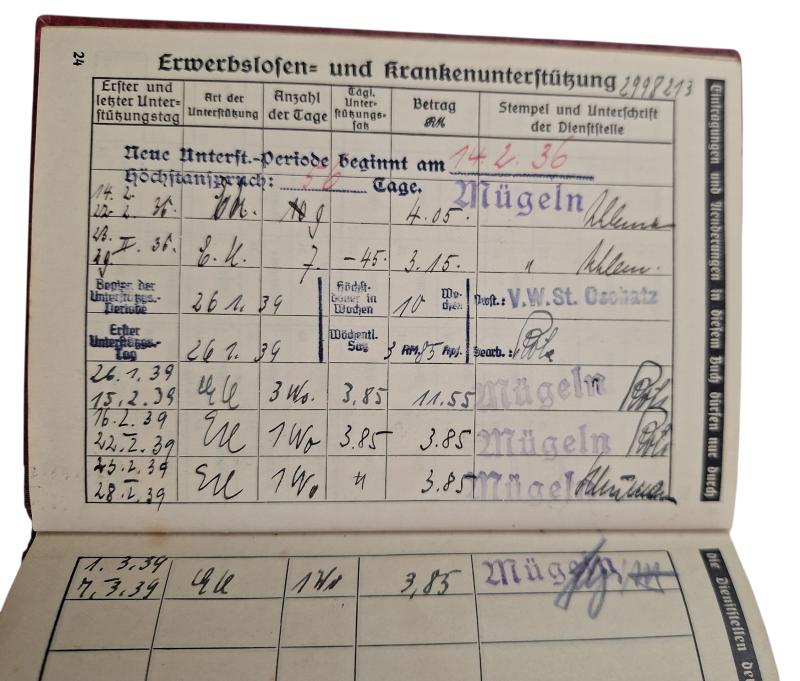 24
Erwerbslosen= und Krankenunterstützung 2998213
Erster und letzter Unter=stützungstag Art der Unterstützung Anzahl der Tage Tägl. Unter=stützungs=satz Betrag RM Stempel und Unterschrift der Dienststelle
Neue Unterst.-Periode beginnt am 14. 2. 36
Höchstanspruch: 56 Tage.
14. 2.
22. 2. 36. 9 4.05. Mügeln
23.
29 II. 36. E. U. 7. -45. 3.15. "
Beginn der Unterstützungs.-Periode 26 1. 39 Höchst-dauer in Wochen 10 Wo-chen Dust.: V.W.St. Oschatz
Erster Unterstützungs.-Tag 26 1. 39 Wöchentl. Satz 3 RM. 85 Rpf. Bearb.:
26. 1. 39
15. 2. 39 3 Wo. 3,85 11.55 Mügeln
16. 2. 39
22. 2. 39 1 Wo 3.85 3.85 Mügeln
23. 2. 39
28. 2. 39 1 Wo " 3.85 Mügeln
1. 3. 39
7. 3. 39 1 Wo 3,85 Mügeln
Eintragungen und Aenderungen in diesem Buch dürfen nur durch
die Dienststellen